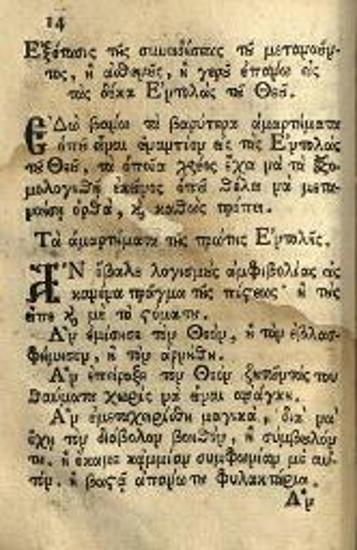 14
Ἐξέτασις τῆς συνειδήσεως τοῦ μετανοοῦν-
τος, ἢ ἀσθενοῦς, ἢ γερὸ ἐπάνω εἰς
τὰς δέκα Ἐντολὰς τοῦ Θεοῦ.
ΕΔῶ βάνω τὰ βαρύτερα ἁμαρτήματα
ὁποῦ εἶναι ἐναντίον εἰς τὰς Ἐντολὰς
τοῦ Θεοῦ, τὰ ὁποῖα χρέος ἔχει νὰ τὰ ἐξο-
μολογηθῇ ἐκεῖνος ὁποῦ θέλει νὰ μετα-
νοήσῃ ὀρθὰ, καὶ καθὼς πρέπει.
Τὰ ἁμαρτήματα τῆς πρώτης Ἐντολῆς.
ἌΝ ἔβαλε λογισμὸς ἀμφιβολίας εἰς
κανένα πρᾶγμα τῆς πίστεως· ἢ τὸ
εἶπε καὶ μὲ τὸ στόμα του.
Ἂν ἐμίσησε τὸν Θεὸν, ἢ τὸν ἐβλασ-
φήμησεν, ἢ τὸν ἀρνήθη.
Ἂν ἐπείραξε τὸν Θεὸν ζητῶντάς του
θαύματα χωρὶς νὰ εἶναι ἀνάγκη.
Ἂν ἐμεταχειρίσθη μαγικὰ, διὰ νὰ
ἔχῃ τὸν διάβολον βοηθὸν, ἢ σύμβουλόν
του, ἢ ἔκαμε καμμίαν συμφωνίαν μὲ αὐ-
τὸν, ἢ βαστᾷ ἀπάνω του φυλακτήρια.
Ἂν